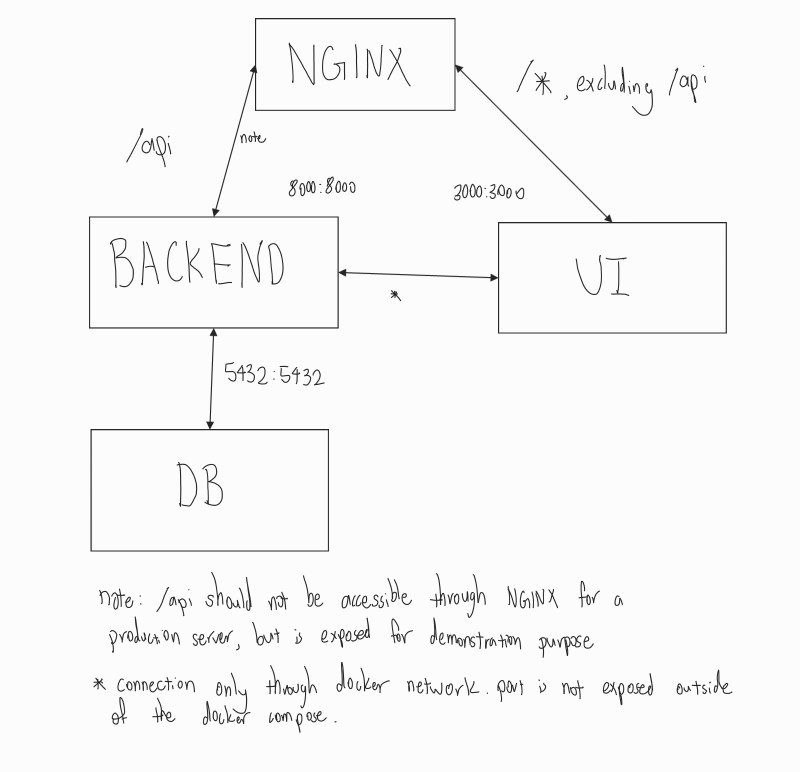 NGINX
/*, excluding /api
/api
note
8000:8000
3000:3000
BACKEND
UI
*
5432:5432
DB
note: /api should not be accessible through NGINX for a
production server, but is exposed for demonstration purpose
* connection only through docker network. port is not exposed outside
of the docker compose.